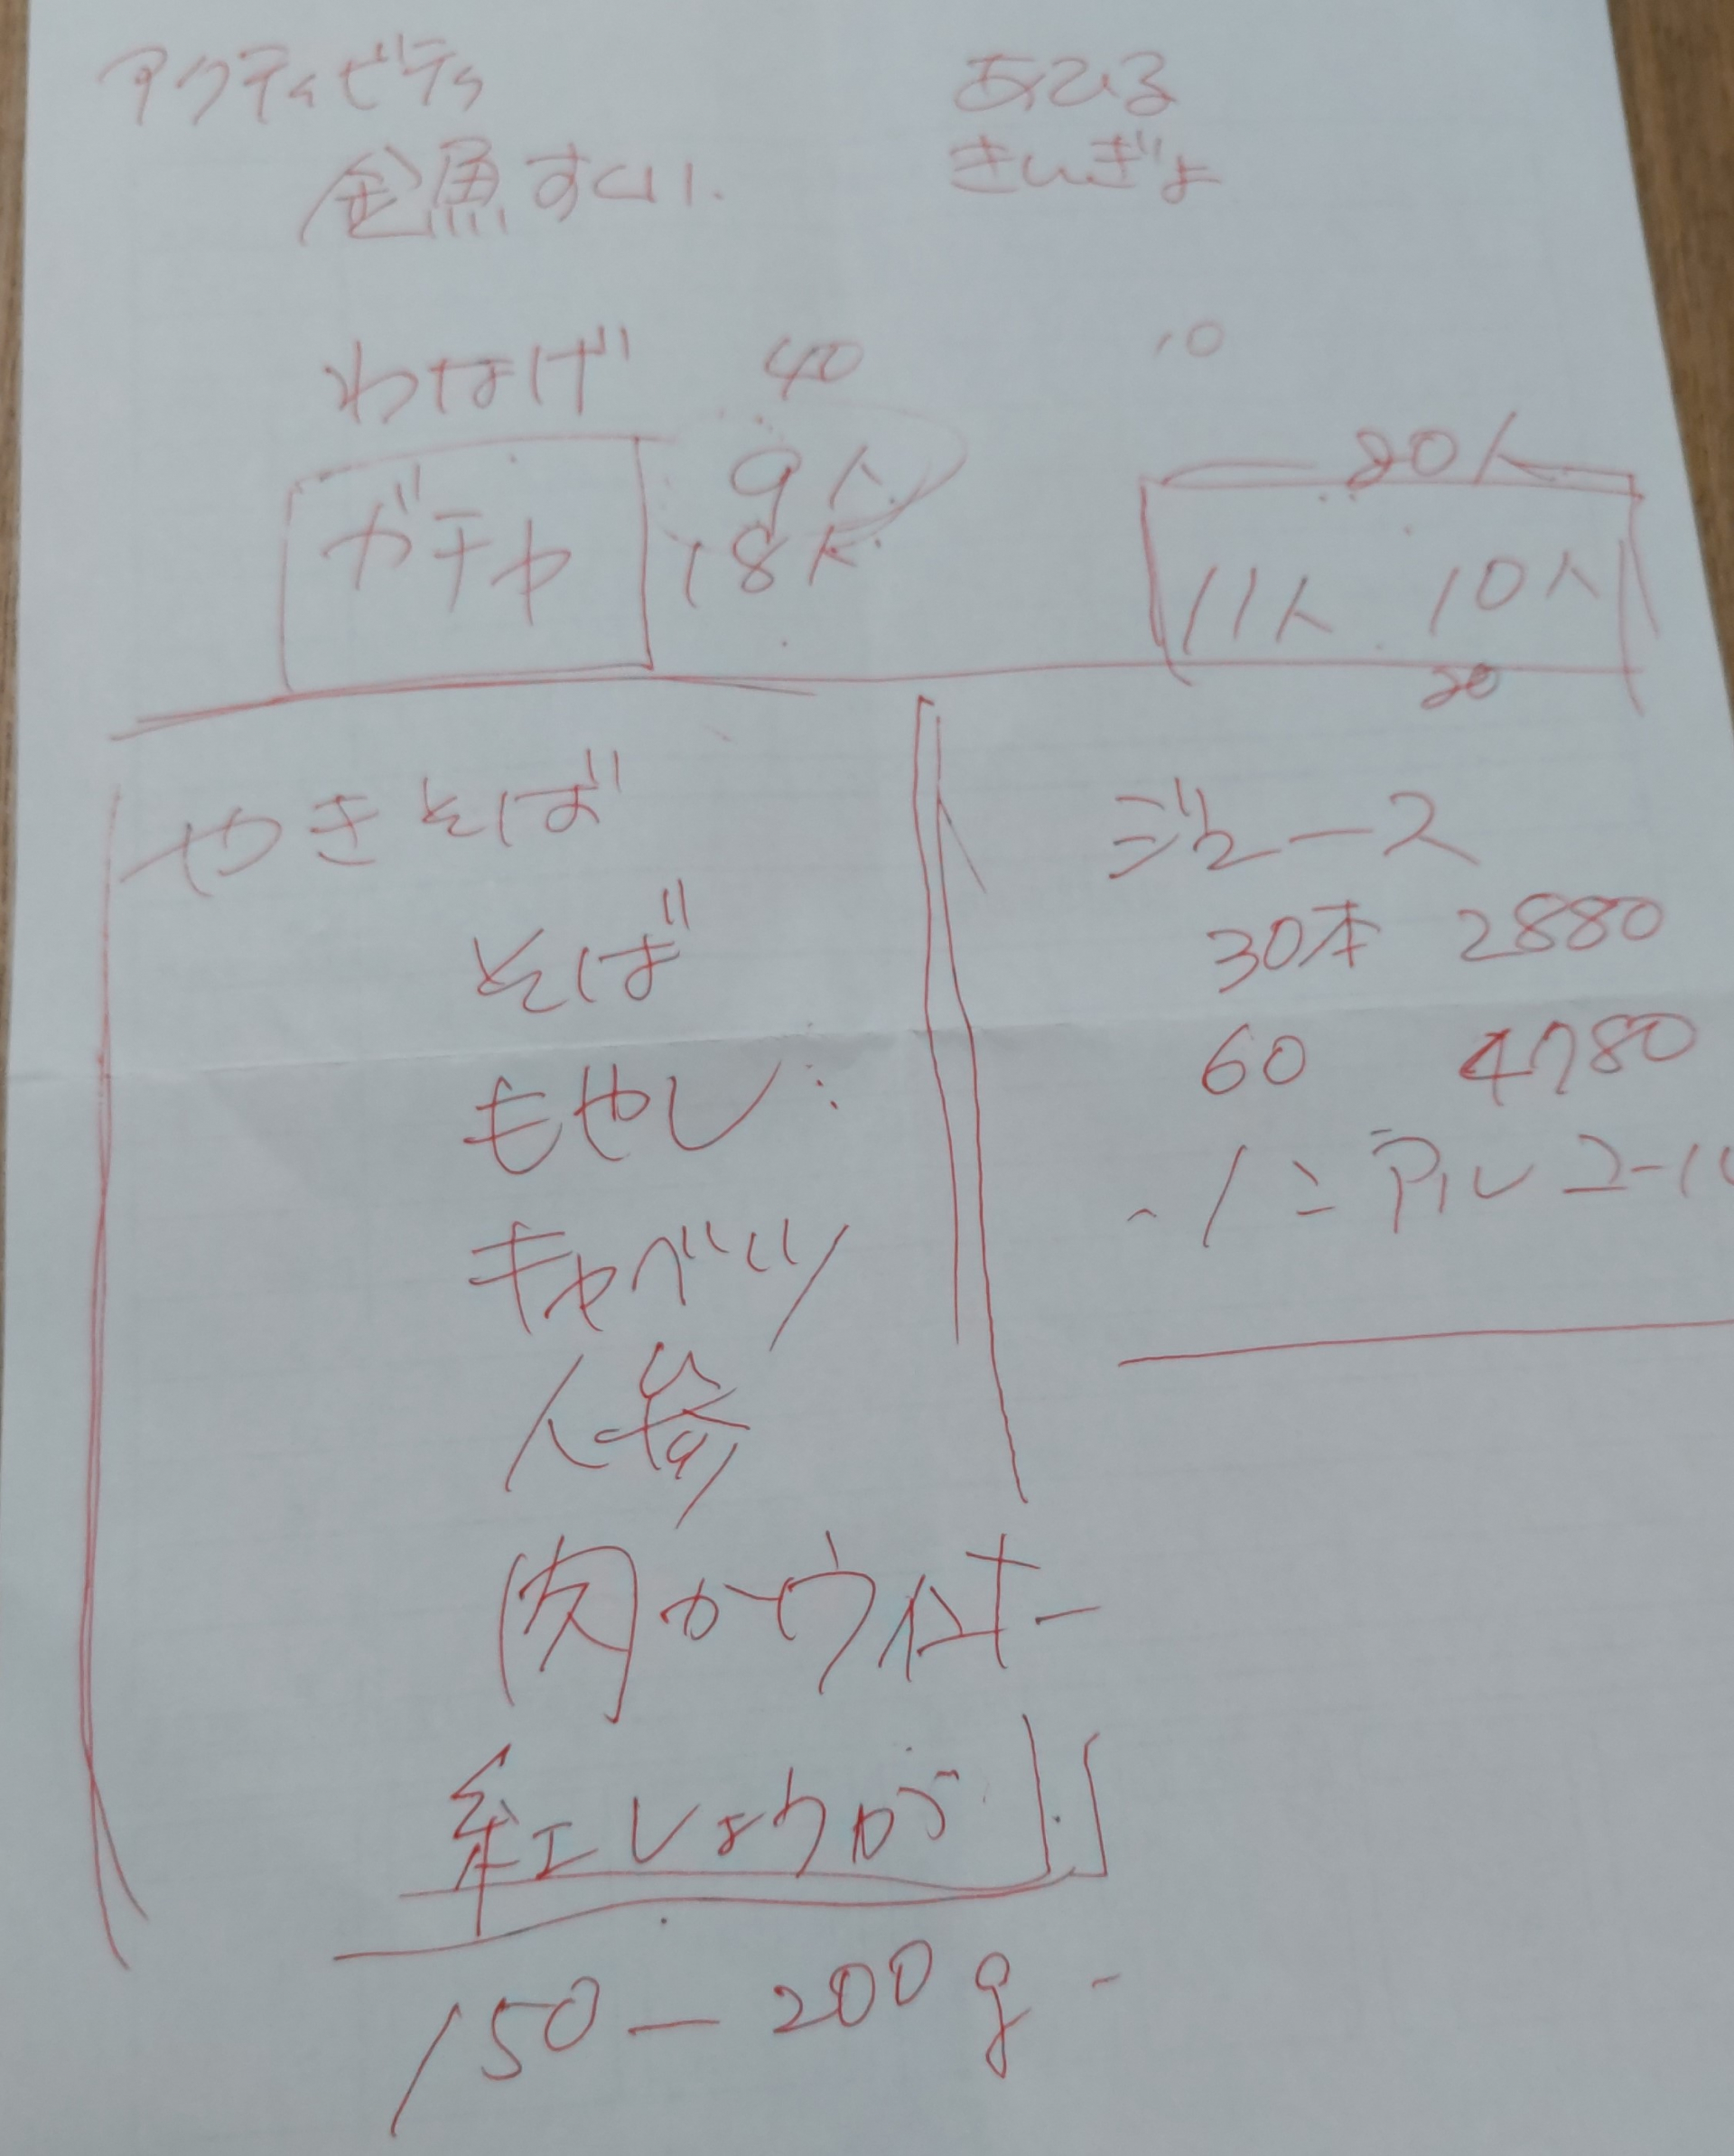 アクティビティ
金魚すくい
あひる
きんぎょ
わなげ 40 10
ガチャ
9人
18人
11人 10人
20
やきそば
そば
もやし
キャベツ
人参
肉かウィンナー
紅しょうが
150ー200g
ジュース
30本 2880
60 4780
ノンアルコール